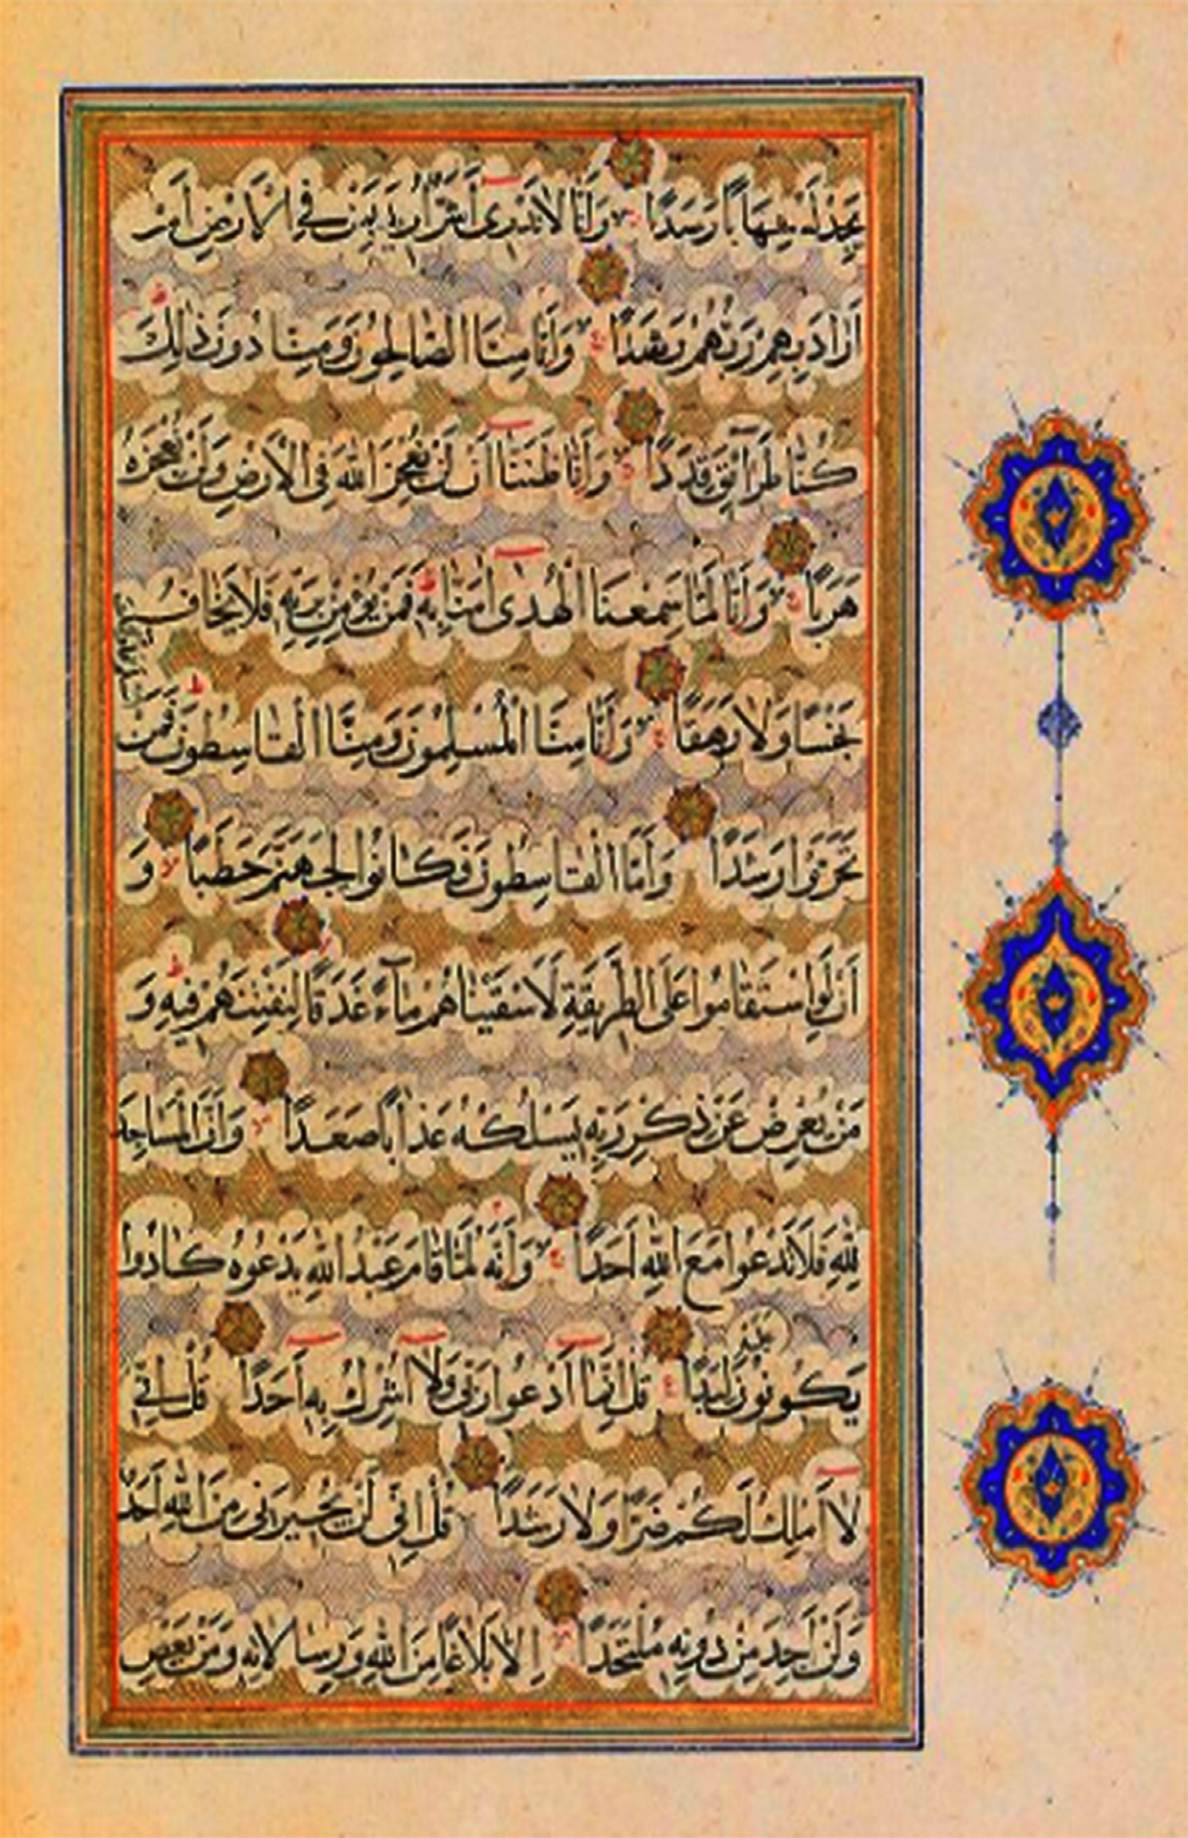 يَجِدْ لَهُ شِهَابًا رَصَدًا وَأَنَّا لَا نَدْرِى أَشَرٌّ أُرِيدَ بِمَنْ فِى الْأَرْضِ أَمْ
أَرَادَ بِهِمْ رَبُّهُمْ رَشَدًا وَأَنَّا مِنَّا الصَّالِحُونَ وَمِنَّا دُونَ ذٰلِكَ
كُنَّا طَرَآئِقَ قِدَدًا وَأَنَّا ظَنَنَّا أَنْ لَنْ نُعْجِزَ اللهَ فِى الْأَرْضِ وَلَنْ نُعْجِزَهُ
هَرَبًا وَأَنَّا لَمَّا سَمِعْنَا الْهُدٰى اٰمَنَّا بِهِ فَمَنْ يُؤْمِنْ بِرَبِّهِ فَلَا يَخَافُ
بَخْسًا وَلَا رَهَقًا وَأَنَّا مِنَّا الْمُسْلِمُونَ وَمِنَّا الْقَاسِطُونَ فَمَنْ
تَحَرَّوْا رَشَدًا وَأَمَّا الْقَاسِطُونَ فَكَانُوا لِجَهَنَّمَ حَطَبًا وَ
أَنْ لَوِ اسْتَقَامُوا عَلَى الطَّرِيقَةِ لَأَسْقَيْنَاهُمْ مَآءً غَدَقًا لِنَفْتِنَهُمْ فِيهِ وَ
مَنْ يُعْرِضْ عَنْ ذِكْرِ رَبِّهِ يَسْلُكْهُ عَذَابًا صَعَدًا وَأَنَّ الْمَسَاجِدَ
لِلّٰهِ فَلَا تَدْعُوا مَعَ اللهِ أَحَدًا وَأَنَّهُ لَمَّا قَامَ عَبْدُ اللهِ يَدْعُوهُ كَادُوا
يَكُونُونَ لِبَدًا قُلْ إِنَّمَا أَدْعُوا رَبِّى وَلَا أُشْرِكُ بِهِ أَحَدًا قُلْ إِنِّى
لَا أَمْلِكُ لَكُمْ ضَرًّا وَلَا رَشَدًا قُلْ إِنِّى لَنْ يُجِيرَنِى مِنَ اللهِ أَحَدٌ
وَلَنْ أَجِدَ مِنْ دُونِهِ مُلْتَحَدًا إِلَّا بَلَاغًا مِنَ اللهِ وَرِسَالَاتِهِ وَمَنْ يَعْصِ